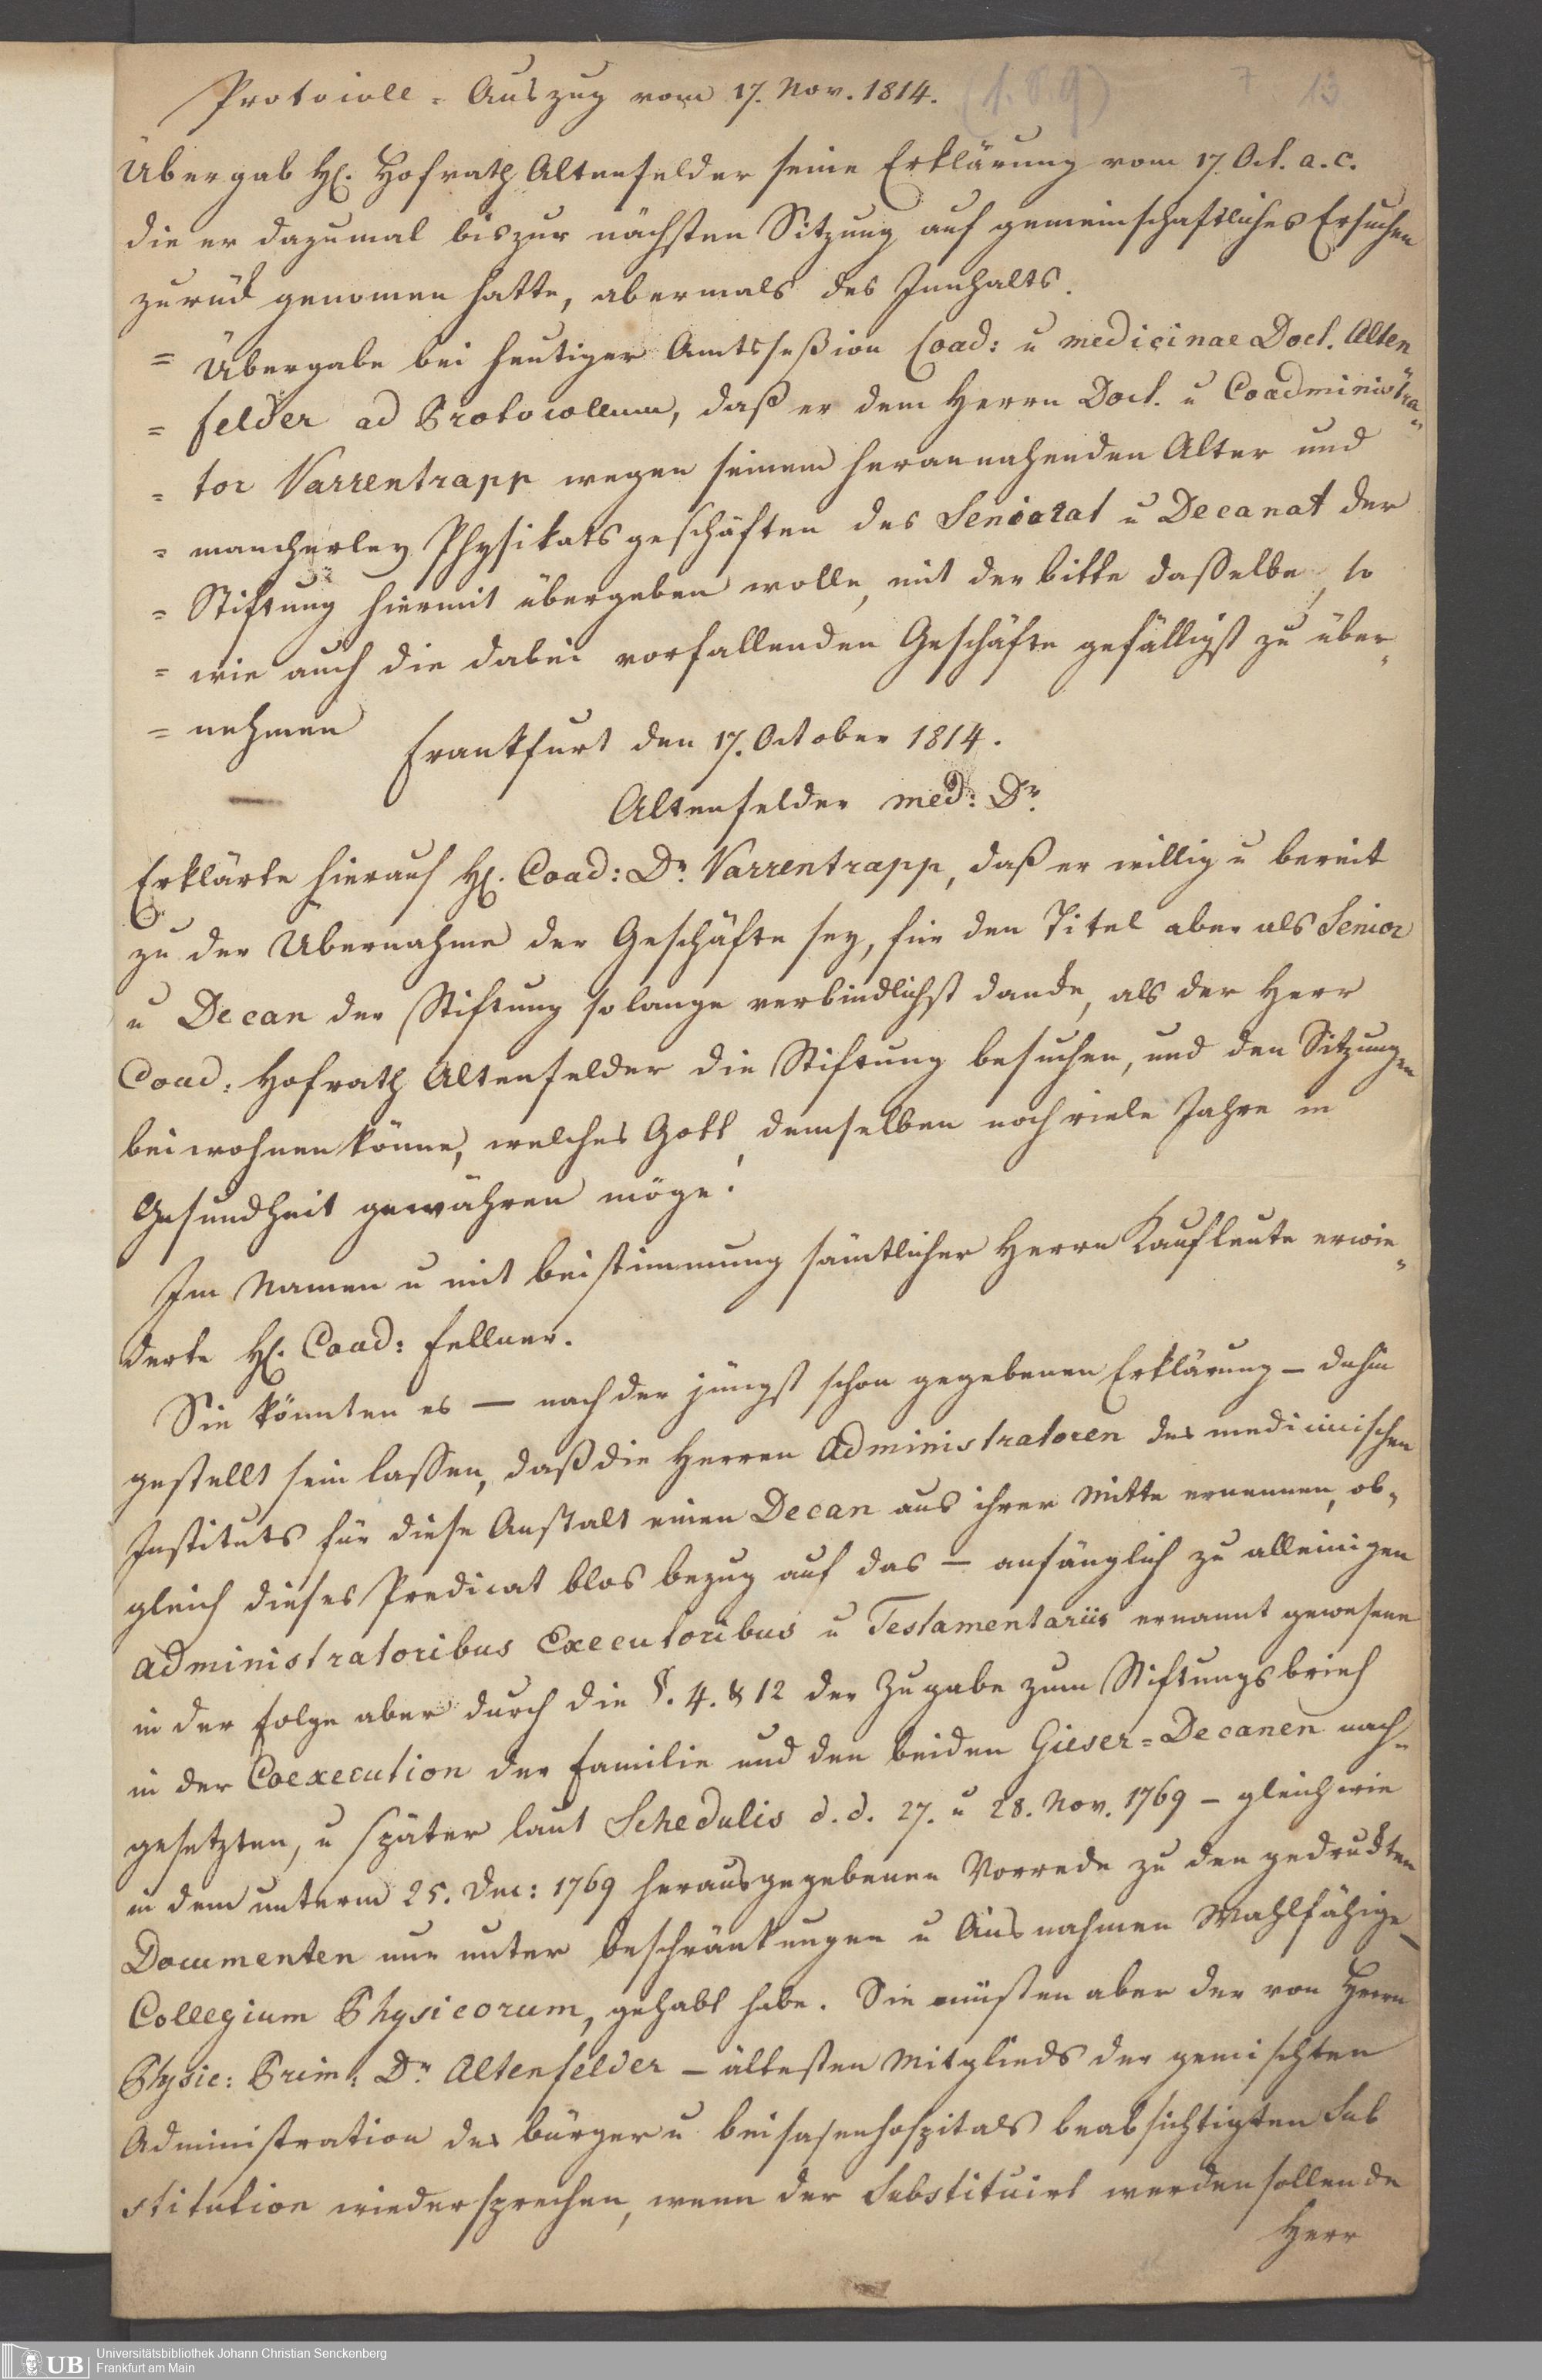 Protocoll = Auszug vom 17. Nov. 1814. (1.89) 7 13
Übergab H. Hofrath Altenfelder seine Erklärung vom 17 Oct. a. c.
die er dazumal bis zur nächsten Sitzung auf gemeinschaftliches Ersuchen
zurück genomen hatte, abermals des Innhalts.
= Übergabe bei heutiger Amtsseßion Coad: u medicinae Doct. Alten
= felder ad Protocollum, daß er dem Herrn Doct. u Coadministra=
= tor Varrentrapp wegen seinem herannahenden Alter und
= mancherley Physikatsgeschäften das Seniorat u Decanat der
= Stiftung hiermit übergeben wolle, mit der bitte dasselbe, so
= wie auch die dabei vorfallenden Geschäfte gefälligst zu über=
= nehmen
Frankfurt den 17. October 1814.
Altenfelder med: Dr.
Erklärte hierauf H. Coad: Dr. Varrentrapp, daß er willig u bereit
zu der Übernahme der Geschäfte sey, für den Titel aber als Senior
u Decan der Stiftung so lange verbindlichst danke, als der Herr
Coad: Hofrath Altenfelder die Stiftung besuchen, und den Sitzungen
beiwohnen könne, welches Gott, demselben noch viele Jahre in
Gesundheit gewähren möge!
Im Namen u mit beistimmung sämtlicher Herrn Kaufleute erwie=
derte H. Coad: Fellner.
Sie könnten es — nach der jüngst schon gegebenen Erklärung — dahin
gestellt sein lassen, daß die Herren Administratoren des medicinischen
Instituts für diese Anstalt einen Decan aus ihrer Mitte ernennen, ob=
gleich dieses Predicat blos bezug auf das — anfänglich zu alleinigen
administratoribus Executoribus u Testamentariis ernannt gewesene
in der Folge aber durch die §. 4. & 12 der Zugabe zum Stiftungsbrief
in der Coexecution der Familie und den beiden Gieser=Decanen nach=
gesetzten, u später laut Schedulis d. d. 27. u 28. Nov. 1769 — gleichwie
in dem unterm 25. Dec: 1769 herausgegebenen Vorrede zu den gedruckten
Documenten nur unter beschränkungen u Ausnahmen Wahlfähige —
Collegium Physicorum, gehabt habe. Sie müsten aber der von Herrn
Physic: Prim: Dr. Altenfelder — ältesten Mitglieds der gemischten
Administration des bürger u beisasenhospitals beabsichtigten Sub
stitution wiedersprechen, wenn der Substituirt werden sollende
Herr
Universitätsbibliothek Johann Christian Senckenberg
UB Frankfurt am Main